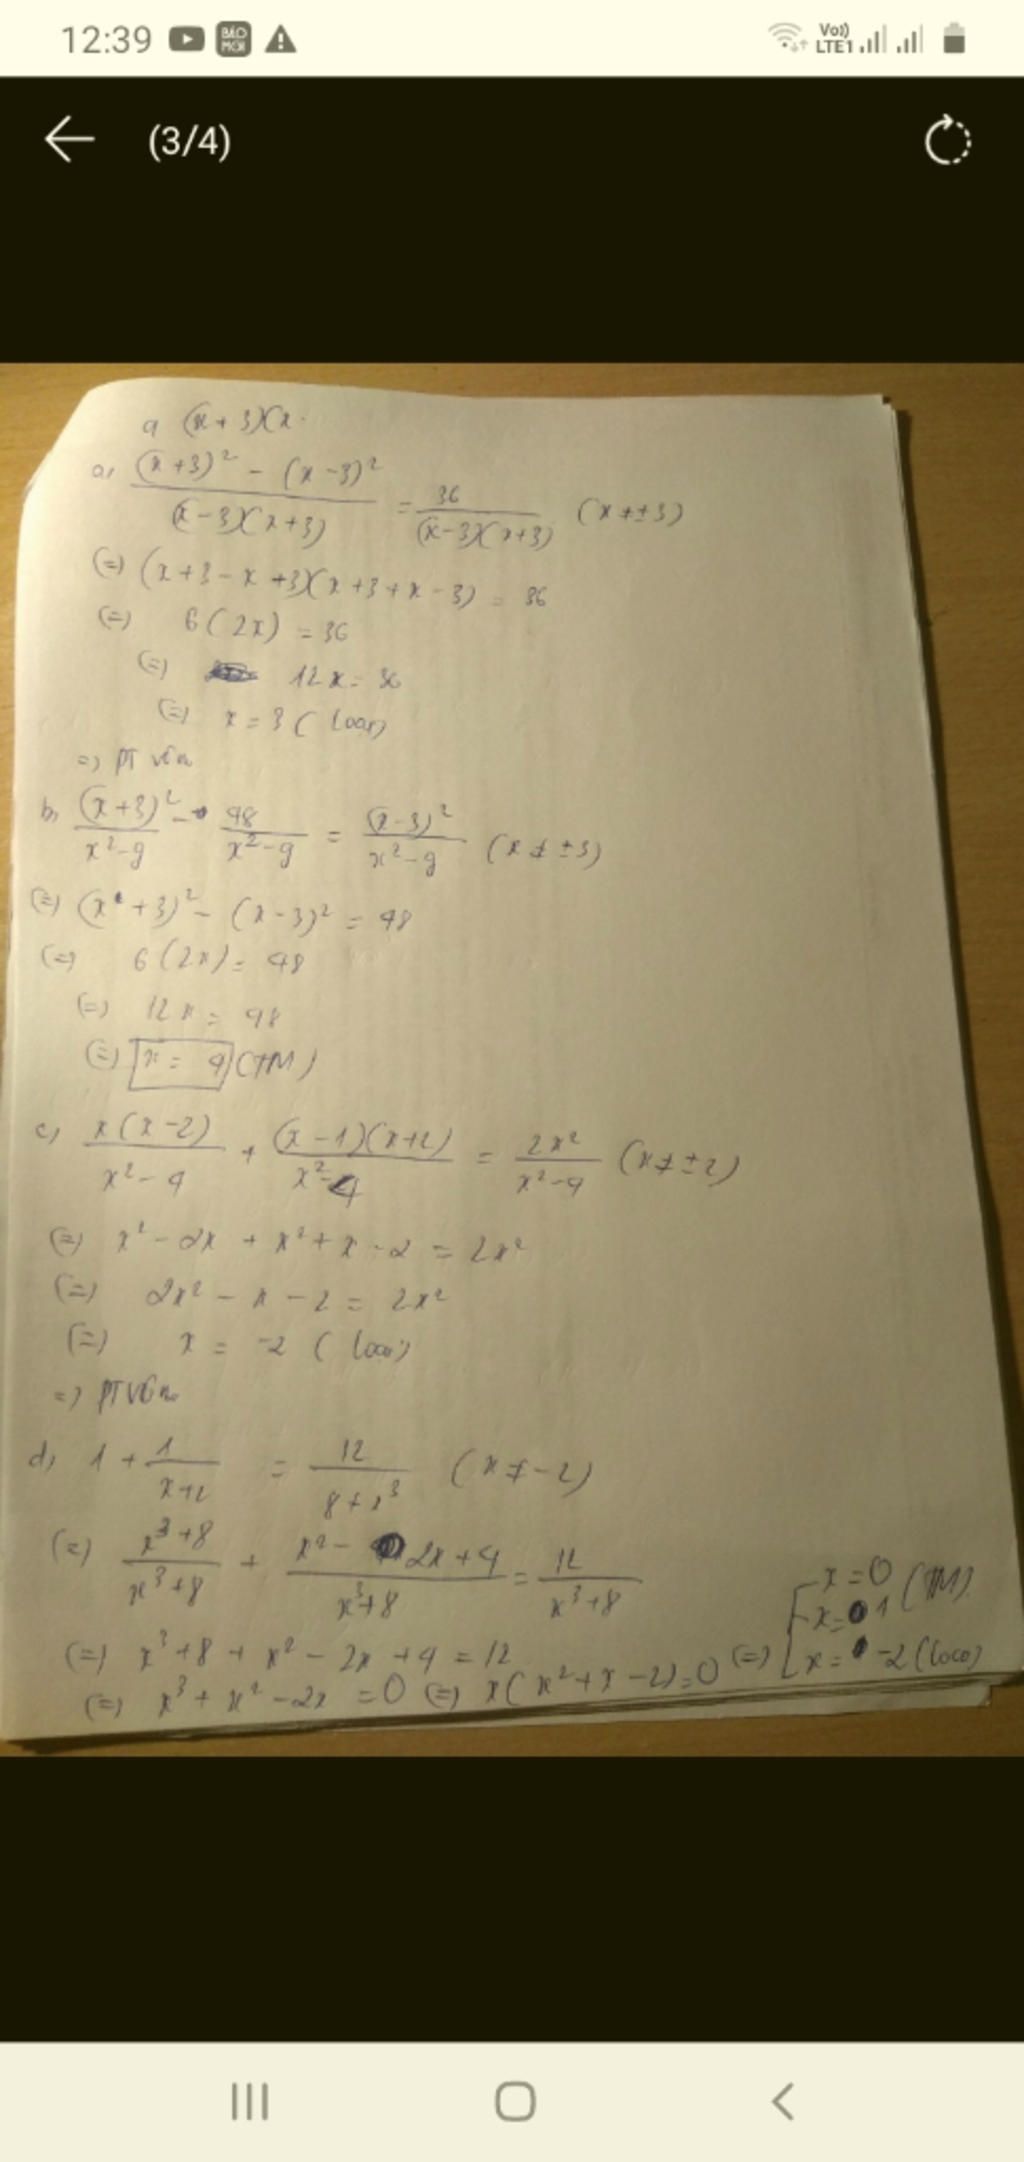 12:39 BÁO MỚI Vo)) LTE1
(3/4)
a (x+3)(x
a, ((x+3)² - (x-3)²)/((x-3)(x+3)) = 36/((x-3)(x+3)) (x ≠ ±3)
(=) (x+3-x+3)(x+3+x-3) = 36
(=) 6(2x) = 36
(=) 12x = 36
(=) x = 3 (loại)
=) PT vôn
b, (x+3)²/(x²-9) - 48/(x²-9) = (x-3)²/(x²-9) (x ≠ ±3)
(=) (x+3)² - (x-3)² = 48
(=) 6(2x) = 48
(=) 12x = 48
(=) x = 4 (TM)
c, x(x-2)/(x²-4) + (x-1)(x+2)/(x²-4) = 2x²/(x²-4) (x ≠ ±2)
(=) x² - 2x + x² + x - 2 = 2x²
(=) 2x² - x - 2 = 2x²
(=) x = -2 (loại)
=) PT vôn
d, 1 + 1/(x+2) = 12/(8+x³) (x ≠ -2)
(=) (x³+8)/(x³+8) + (x² - 2x + 4)/(x³+8) = 12/(x³+8)
(=) x³ + 8 + x² - 2x + 4 = 12
(=) x³ + x² - 2x = 0 (=) x(x² + x - 2) = 0 (=) [ x = 0
x = 1 (TM)
x = -2 (loại)